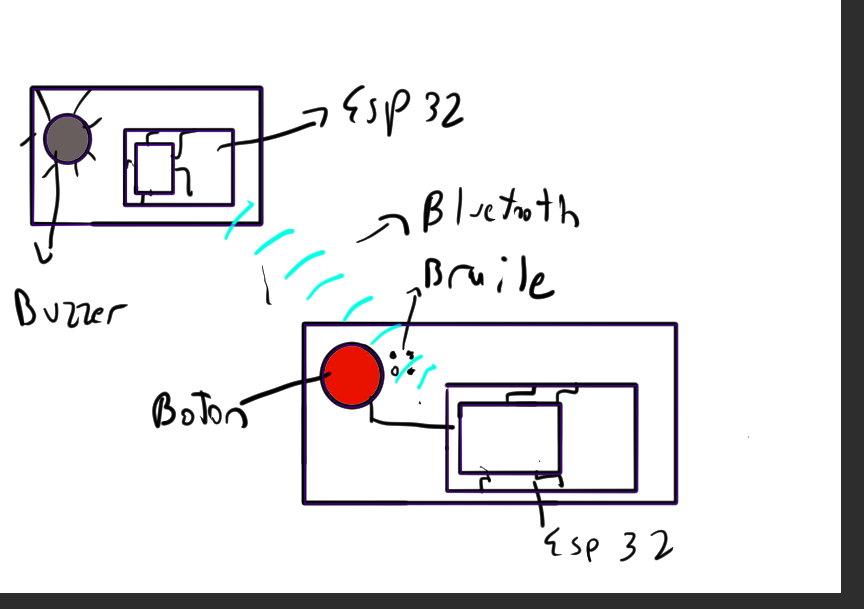 Esp 32
Bluetooth
Braile
Buzzer
Boton
Esp 32